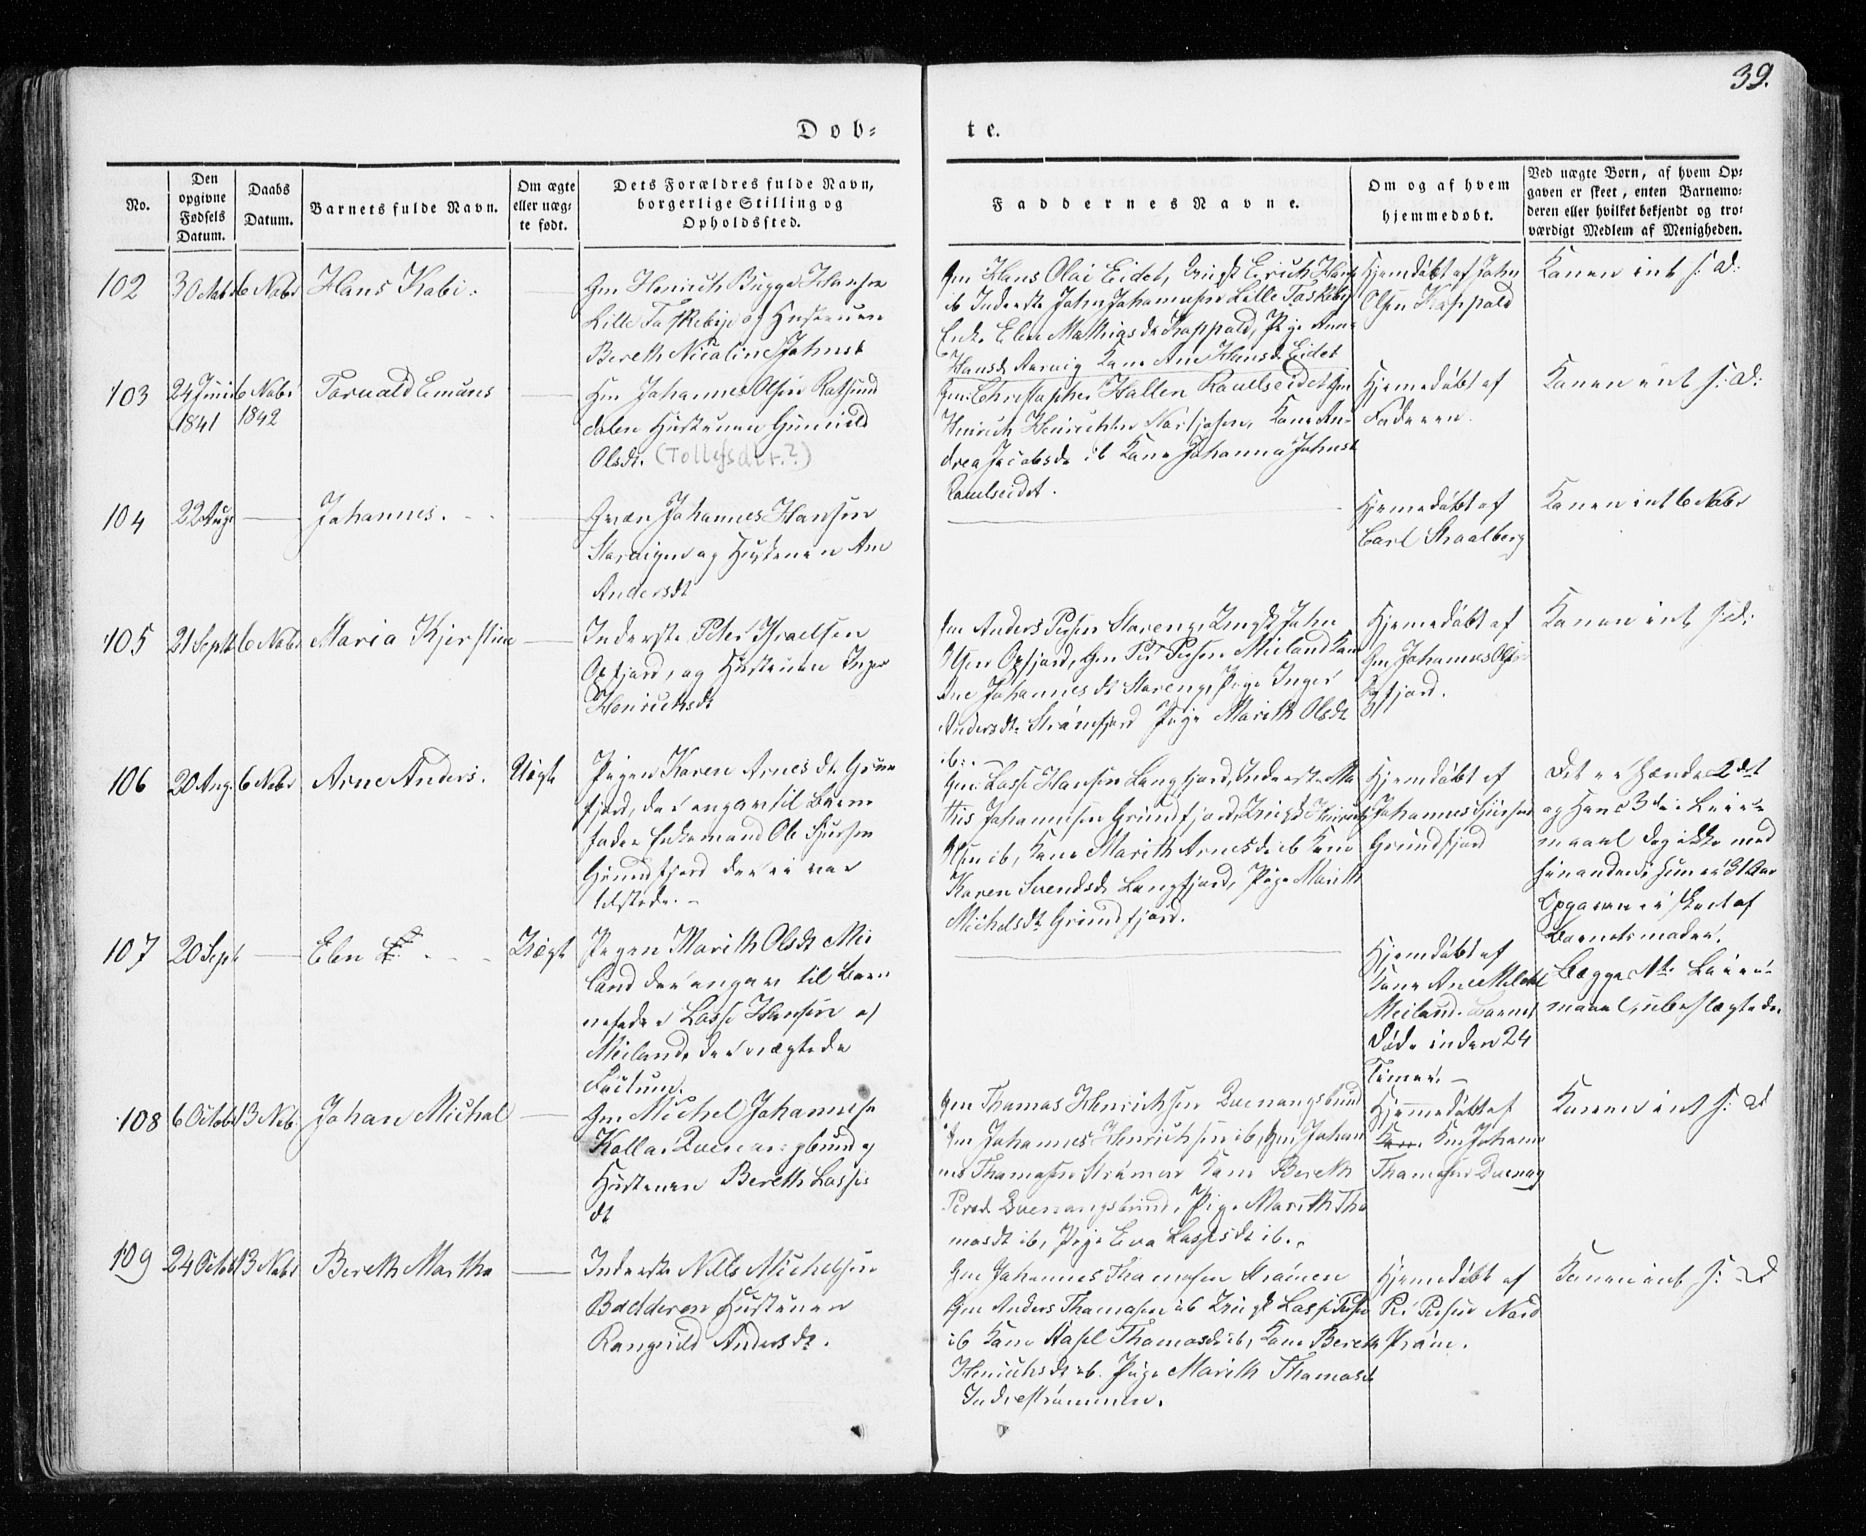 39.
Døb-
te.
No.
Den
opgivne
Fødsels
Datum.
Daabs
Datum.
Barnets fulde Navn.
Om ægte
eller uæg-
te født.
Dets Forældres fulde Navn,
borgerlige Stilling og
Opholdssted.
Faddernes Navne.
Om og af hvem
hjemmedøbt.
Ved uægte Børn, af hvem Op-
gaven er skeet, enten Barnemo-
deren eller hvilket bekjendt og tro-
værdigt Medlem af Menigheden.
102
6 Nobr
Hans Kabi
Gm Henrich Bugge Hansen
Lille Taskebye og Hustruen
Bereth Nicoline Johnsd
Gm Hans Olai Eidet, Ungk Erich Hans
ib Inderste John Johannesen Lille Taskeby
Enke Elen Mathiasdt Kappald, Pige Ane
Hansdt Kane Ane Hansdt Eidet
Hjemdøbt af John
Olsen Kappald
Konen int s: d:
103
24 Juni
1841
6 Nobr
1842
Torvald Emans
Gm Johannes Olsen Rotsund
dalen Hustruen Gunnild
Olsdt. (Tollefsdtr.?)
Gm Christopher Hallen Ravelseidet Gm
Henrich Henrichsen Kone An-
drea Jacobsdt ib Kone Johanna Johnsd
Ravelseidet.
Hjemedøbt af
Faderen.
Konen int s: d:
104
22 Aug
Johannes.
Johannes Hansen
og Hustruen Ane
Andersdt
Hjemedøbt af
Carl Straalberg
Konen int 6 Nobr
105
21 Sept
6 Nobr
Maria Kjerstine
Inderste Peter Israelsen
Oxfjord, og Hustruen Inger
Henrichsdt
Gm Anders Persen Storeng, Ungk John
Olsen Oxfjord, Gm Per Persen Meiland Kone
Ane Johannesdt Storeng, Pige Inger
Andersdt Strømfjord Pige Marith Olsdt
ib.
Hjemedøbt af
Gm Johannes Olsen
Oxfjord.
Konen int s: d:
106
20 Aug.
6 Nobr
Arne Anders.
Uægte
Pigen Karen Arnesdt Grun
fjord, der angav til Barne
fader Enkemand Ole Siursen
Grundfjord der ei var
tilstede.
Gm Lasse Hansen Langfjord, Inderste Ma
this Johannesen Grundfjord, Ungk Henrich
Olsen ib, Kone Marith Arnesdt ib Kone
Karen Svendsdt Langfjord, Pige Marith
Michelsdt Grundfjord.
Hjemdøbt af
Johannes Siursen
Grundfjord
Det er hendes 2det
og Hans 3die Leier-
maal dog ikke med
hinanden, hun er 31 Aar
Opgaven er skeet af
Barnets moder.
107
20 Sept
Elen
Uægte
Pigen Marith Olsdt Mei
land der angav til Bar
nefader Lasse Hansen af
Meiland, der nægtede
Factum.
Hjemdøbt af
Kone Ane
Meiland. Barnet
døde inden 24
Timer.
Begge 1te Leier-
maal, ubeslægtede.
108
6 Octobr
13 Nob.
Johan Michal
Gm Michel Johannesen
Kollar Qvenangsbund og
Hustruen Bereth Lasses
dt
Gm Thomas Henrichsen Qvenangsbund
Gm Johannes Henrichsen ib, Gm Johan
nes Thomasen Strømen Kone Bereth
Persdt Qvenangsbund, Pige Marith Tho
masdt ib, Pige Eva Lassesdt ib.
Hjemmedøbt af
Gm Johannes
Thomasen Qvenang
Konen int s: d
109
24 Octobr
13 Nobr
Bereth Martha
Inderste Nils Michelsen
Badderen Hustruen
Rangnild Andersdt.
Gm Johannes Thomasen Strømen
Gm Anders Thomasen ib Ungk Lasse Persen
ib Kone Thomasdt ib, Kone Bereth
Henrichsdt ib. Pige Marith Thomasdt
Indrestrømmen.
Hjemedøbt af
Per Persen Nord
strøm.
Konen int s: d